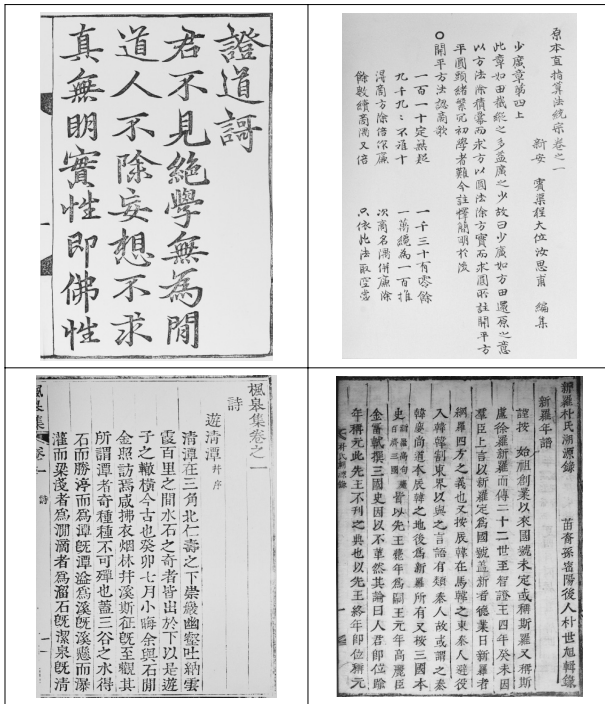 證道謌
君不見絕學無為閒
道人不除妄想不求
真無明實性即佛性
原本直指算法統宗卷之一
新安 賓渠程大位汝思甫 編集
少廣章第四上
此章如田截縱之多益廣之少故曰少廣如方田還原之意
以方法除積冪而求方以圓法除方實而求圓所註開平方
平圓頭緒繁冗初學者難今註釋簡明於後
○開平方法認商歌
一百一十定無疑 一千三十有零餘
九千九〻不離十 一萬纔為一百推
得商方除倍作廉 次商名隅併廉除
餘數續商隅又倍 只依此法取空當
楓皋集卷之一
詩
遊清潭 幷序
清潭在三角北仁壽之下崇巖幽壑吐納雲
霞百里之間水石之奇者皆出於下以是遊
子之轍橫今古也癸卯七月小晦余與石閒
金照訪焉咸拂衣烟林幷溪斯征旣至觀其
所謂潭者奇種種不可殫也蓋三谷之水得
石而勝渟而為潭旣潭溢為溪旣溪懸而瀑
灌而梁淺者為㵎滴者為溜石旣潔泉旣清
楓皋集 卷一 詩 一
新羅朴氏湖源錄 苗裔孫密陽後人朴世旭輯錄
新羅年譜
謹按 始祖創業以來國號未定或稱斯羅又稱斯
盧徐羅新羅而傳二十二世至智證王四年癸未因
羣臣上言以新羅定為國號蓋新者德業日新羅者
網羅四方之義也又按辰韓在馬韓之東秦人避役
入韓韓割東界以與之言語有類秦人故或謂之秦
韓慶尚道本辰韓之地後為新羅所有又按三國本
史新羅高句麗百濟三國皆以先王薨年為嗣王元年高麗臣
金富軾撰三國史因以不革然其論曰人君即位踰
年稱元此先王不刊之典也以先王終年即位稱元